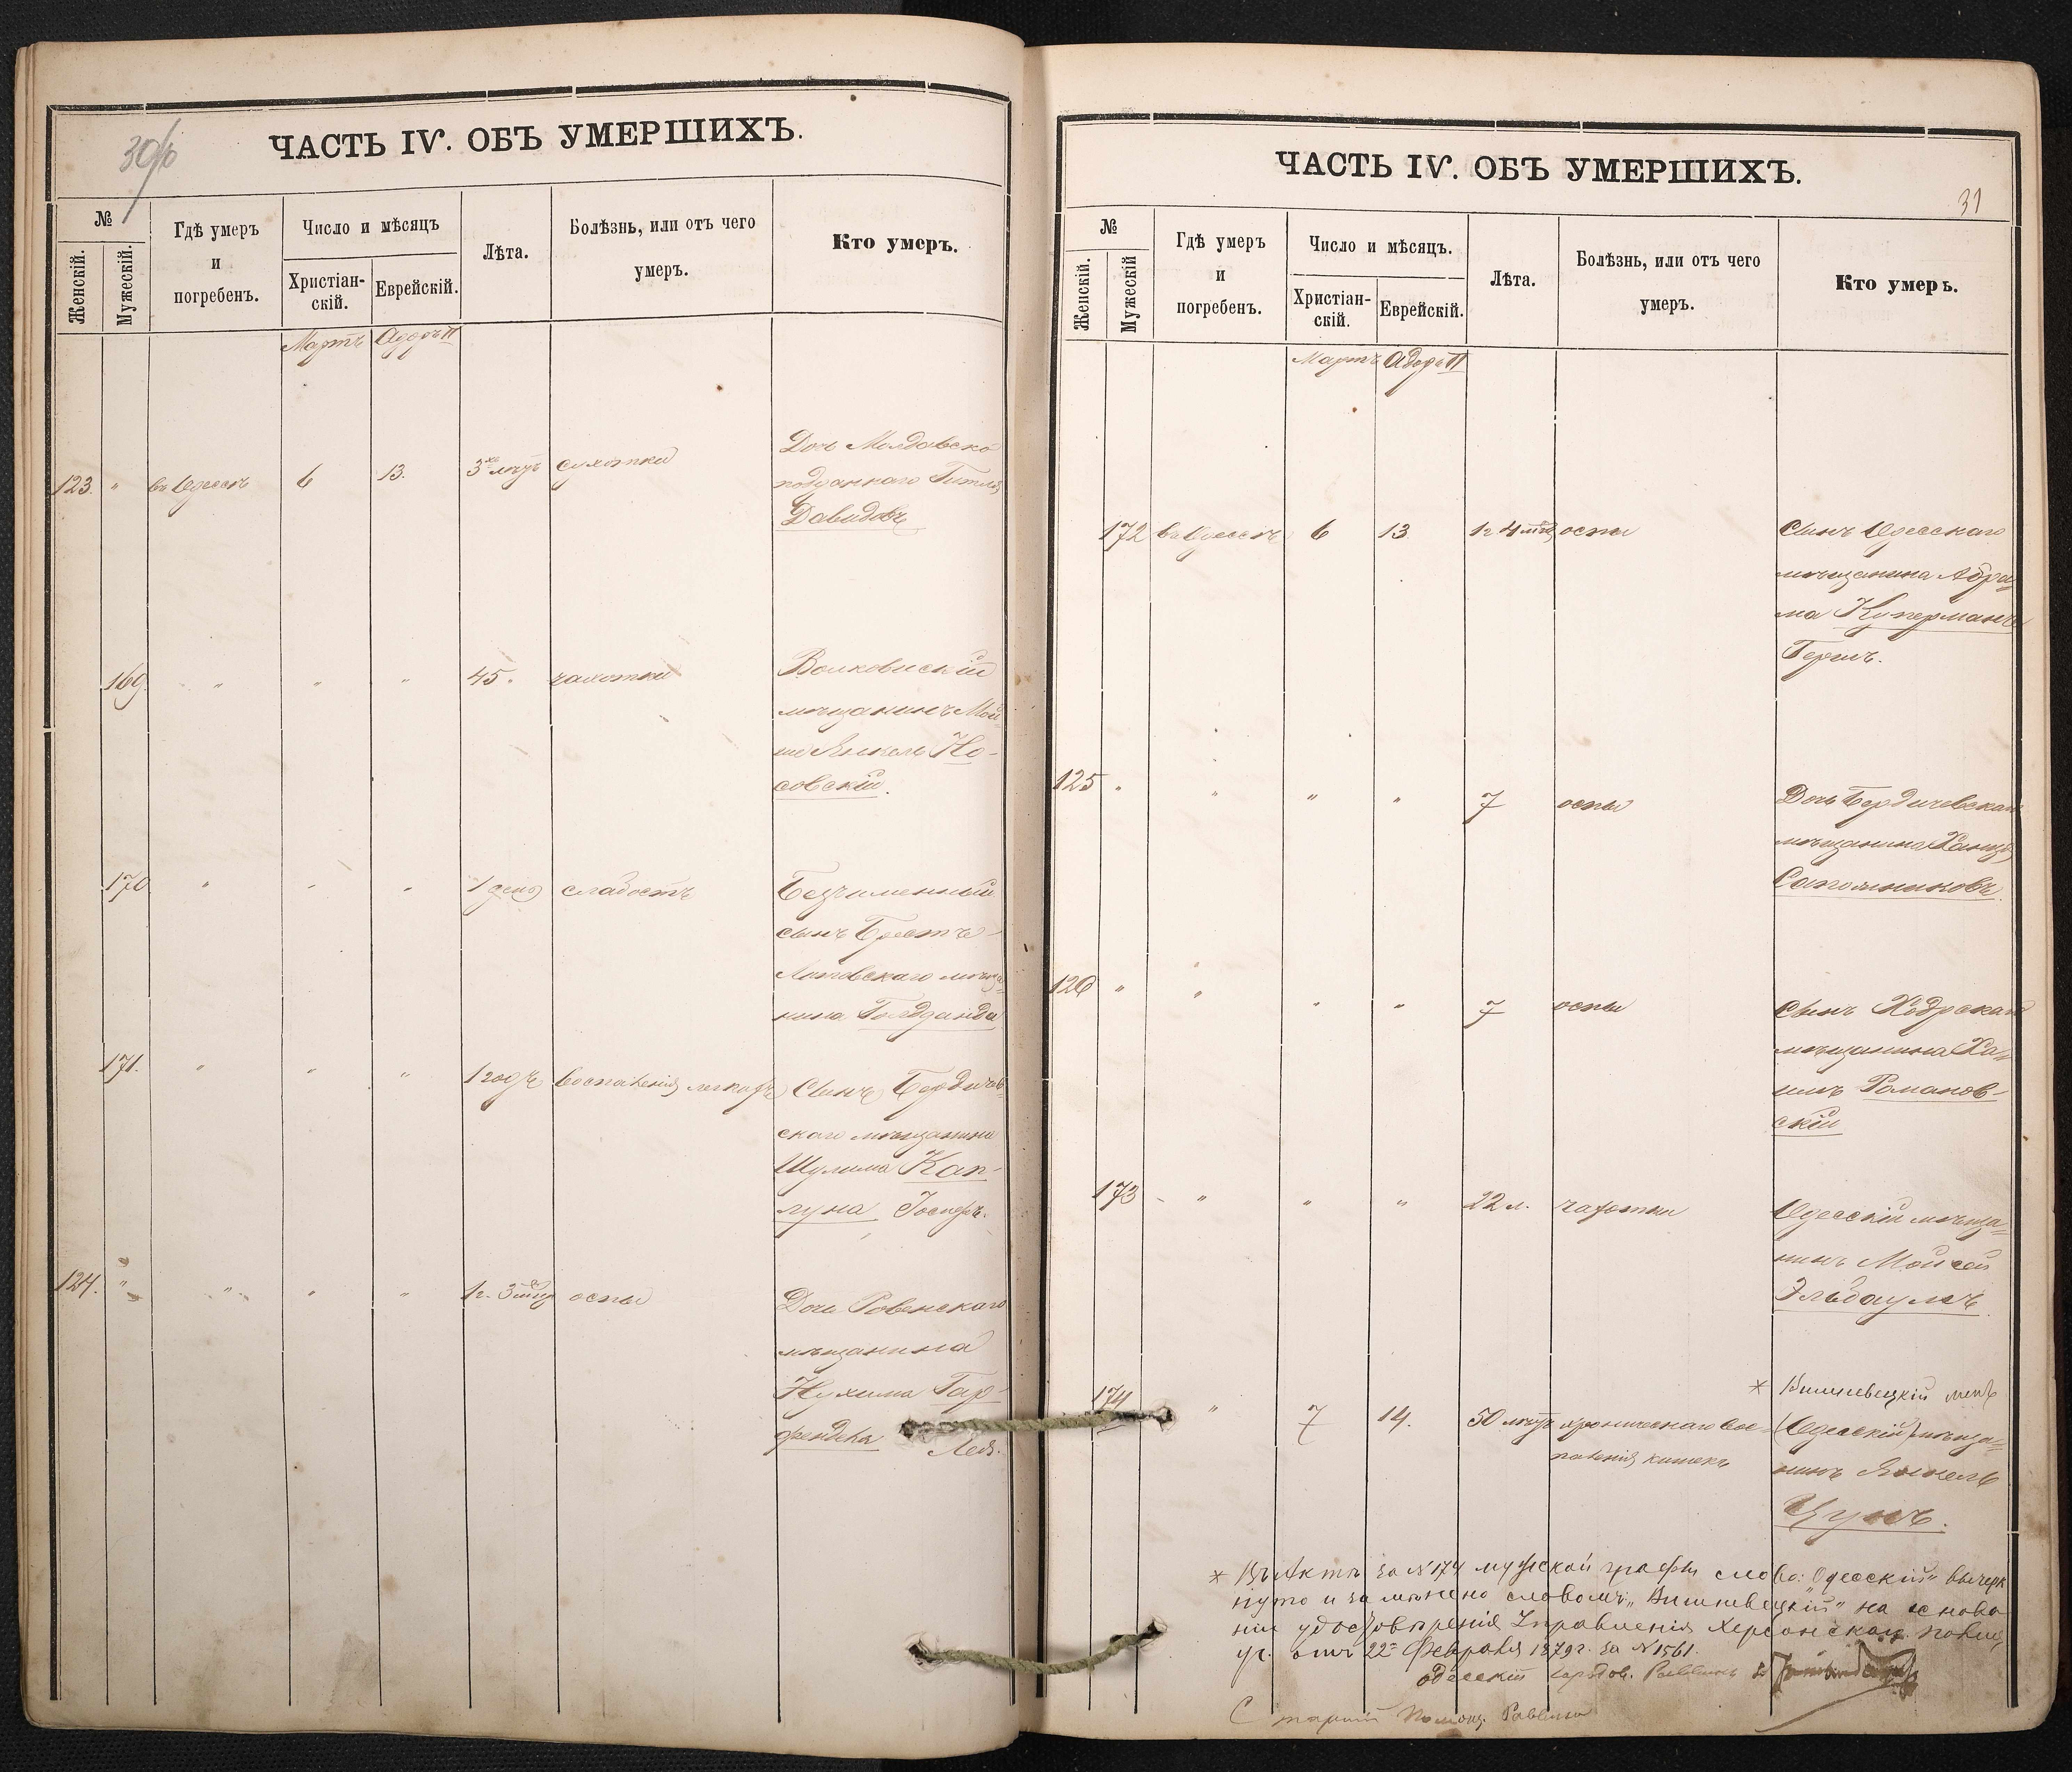 30/б
ЧАСТЬ IV. ОБЪ УМЕРШИХЪ.
№
Женскій.
Мужескій.
Гдѣ умеръ
и
погребенъ.
Число и мѣсяцъ
Христіан-
скій.
Еврейскій.
Лѣта.
Болѣзнь, или отъ чего
умеръ.
Кто умеръ.
Мартъ Адаръ II
123. " въ Одессѣ 6 13. сухотки Дочь Молдавско
подданнаго
Давидовъ
169. " " " 45. чахотки Волковискій
мѣщанинъ Мой-
ше Янкель Но-
совскій.
170 " " " 1 день слабость Безъименный
сынъ Брестъ-
Литовскаго мѣща-
нина
171. " " " 1 годъ воспаленія легкихъ Сынъ Бердичев-
скаго мѣщанина
Шулима Кап-
луна Іосифъ.
124. " " " " 1 г. 3 мѣс. оспы Дочь Ровенскаго
мѣщанина
Нухима Гар-
фенделя Лея.
ЧАСТЬ IV. ОБЪ УМЕРШИХЪ.
31
№
Женскій.
Мужескій
Гдѣ умеръ
и
погребенъ.
Число и мѣсяцъ.
Христіан-
скій.
Еврейскій.
Лѣта.
Болѣзнь, или отъ чего
умеръ.
Кто умеръ.
Мартъ Адаръ II
172 въ Одессѣ 6 13. 1 г. 4 мѣс. оспы Сынъ Одесскаго
мѣщанина Абра-
ма Купермана
Гершъ.
125 " " " " 7 оспы Дочь Бердичевскаго
мѣщанина
Сапожниковъ.
126 " " " " 7 оспы Сынъ
мѣщанина Ха-
имъ Романов-
скій
173 " " " 22 л. чахотки Одесскій мѣща-
нинъ Мойсей
Эльбаумъ
174 " 7 14. 50 хроническаго вос- * Вишневецкій
паленія кишекъ (Одесскій) мѣща-
нинъ Янкель
Цунъ.
* Въ Актѣ за N 174 мужской графы слово: "Одесскій" вычерк
нуто и замѣнено словомъ "Вишневецкій" на основа
ніи удостовѣренія Управленія Херсонской полиц.
отъ 22 Февраля 1879 г. за N 1561.
Одесскій Город. Раввинъ
Старшій Помощ. Раввина